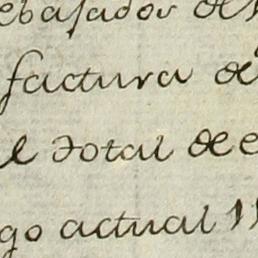 ebajador de
factura de
el total de e
go actual 11